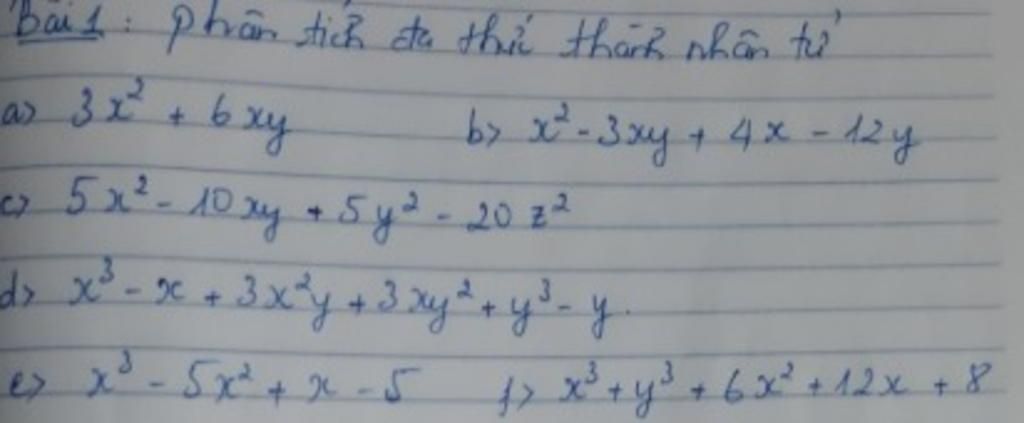 Bài 1 : Phân tích đa thức thành nhân tử
a> 3x² + 6xy b> x² - 3xy + 4x - 12y
c> 5x² - 10xy + 5y² - 20z²
d> x³ - x + 3x²y + 3xy² + y³ - y.
e> x³ - 5x² + x - 5 f> x³ + y³ + 6x² + 12x + 8